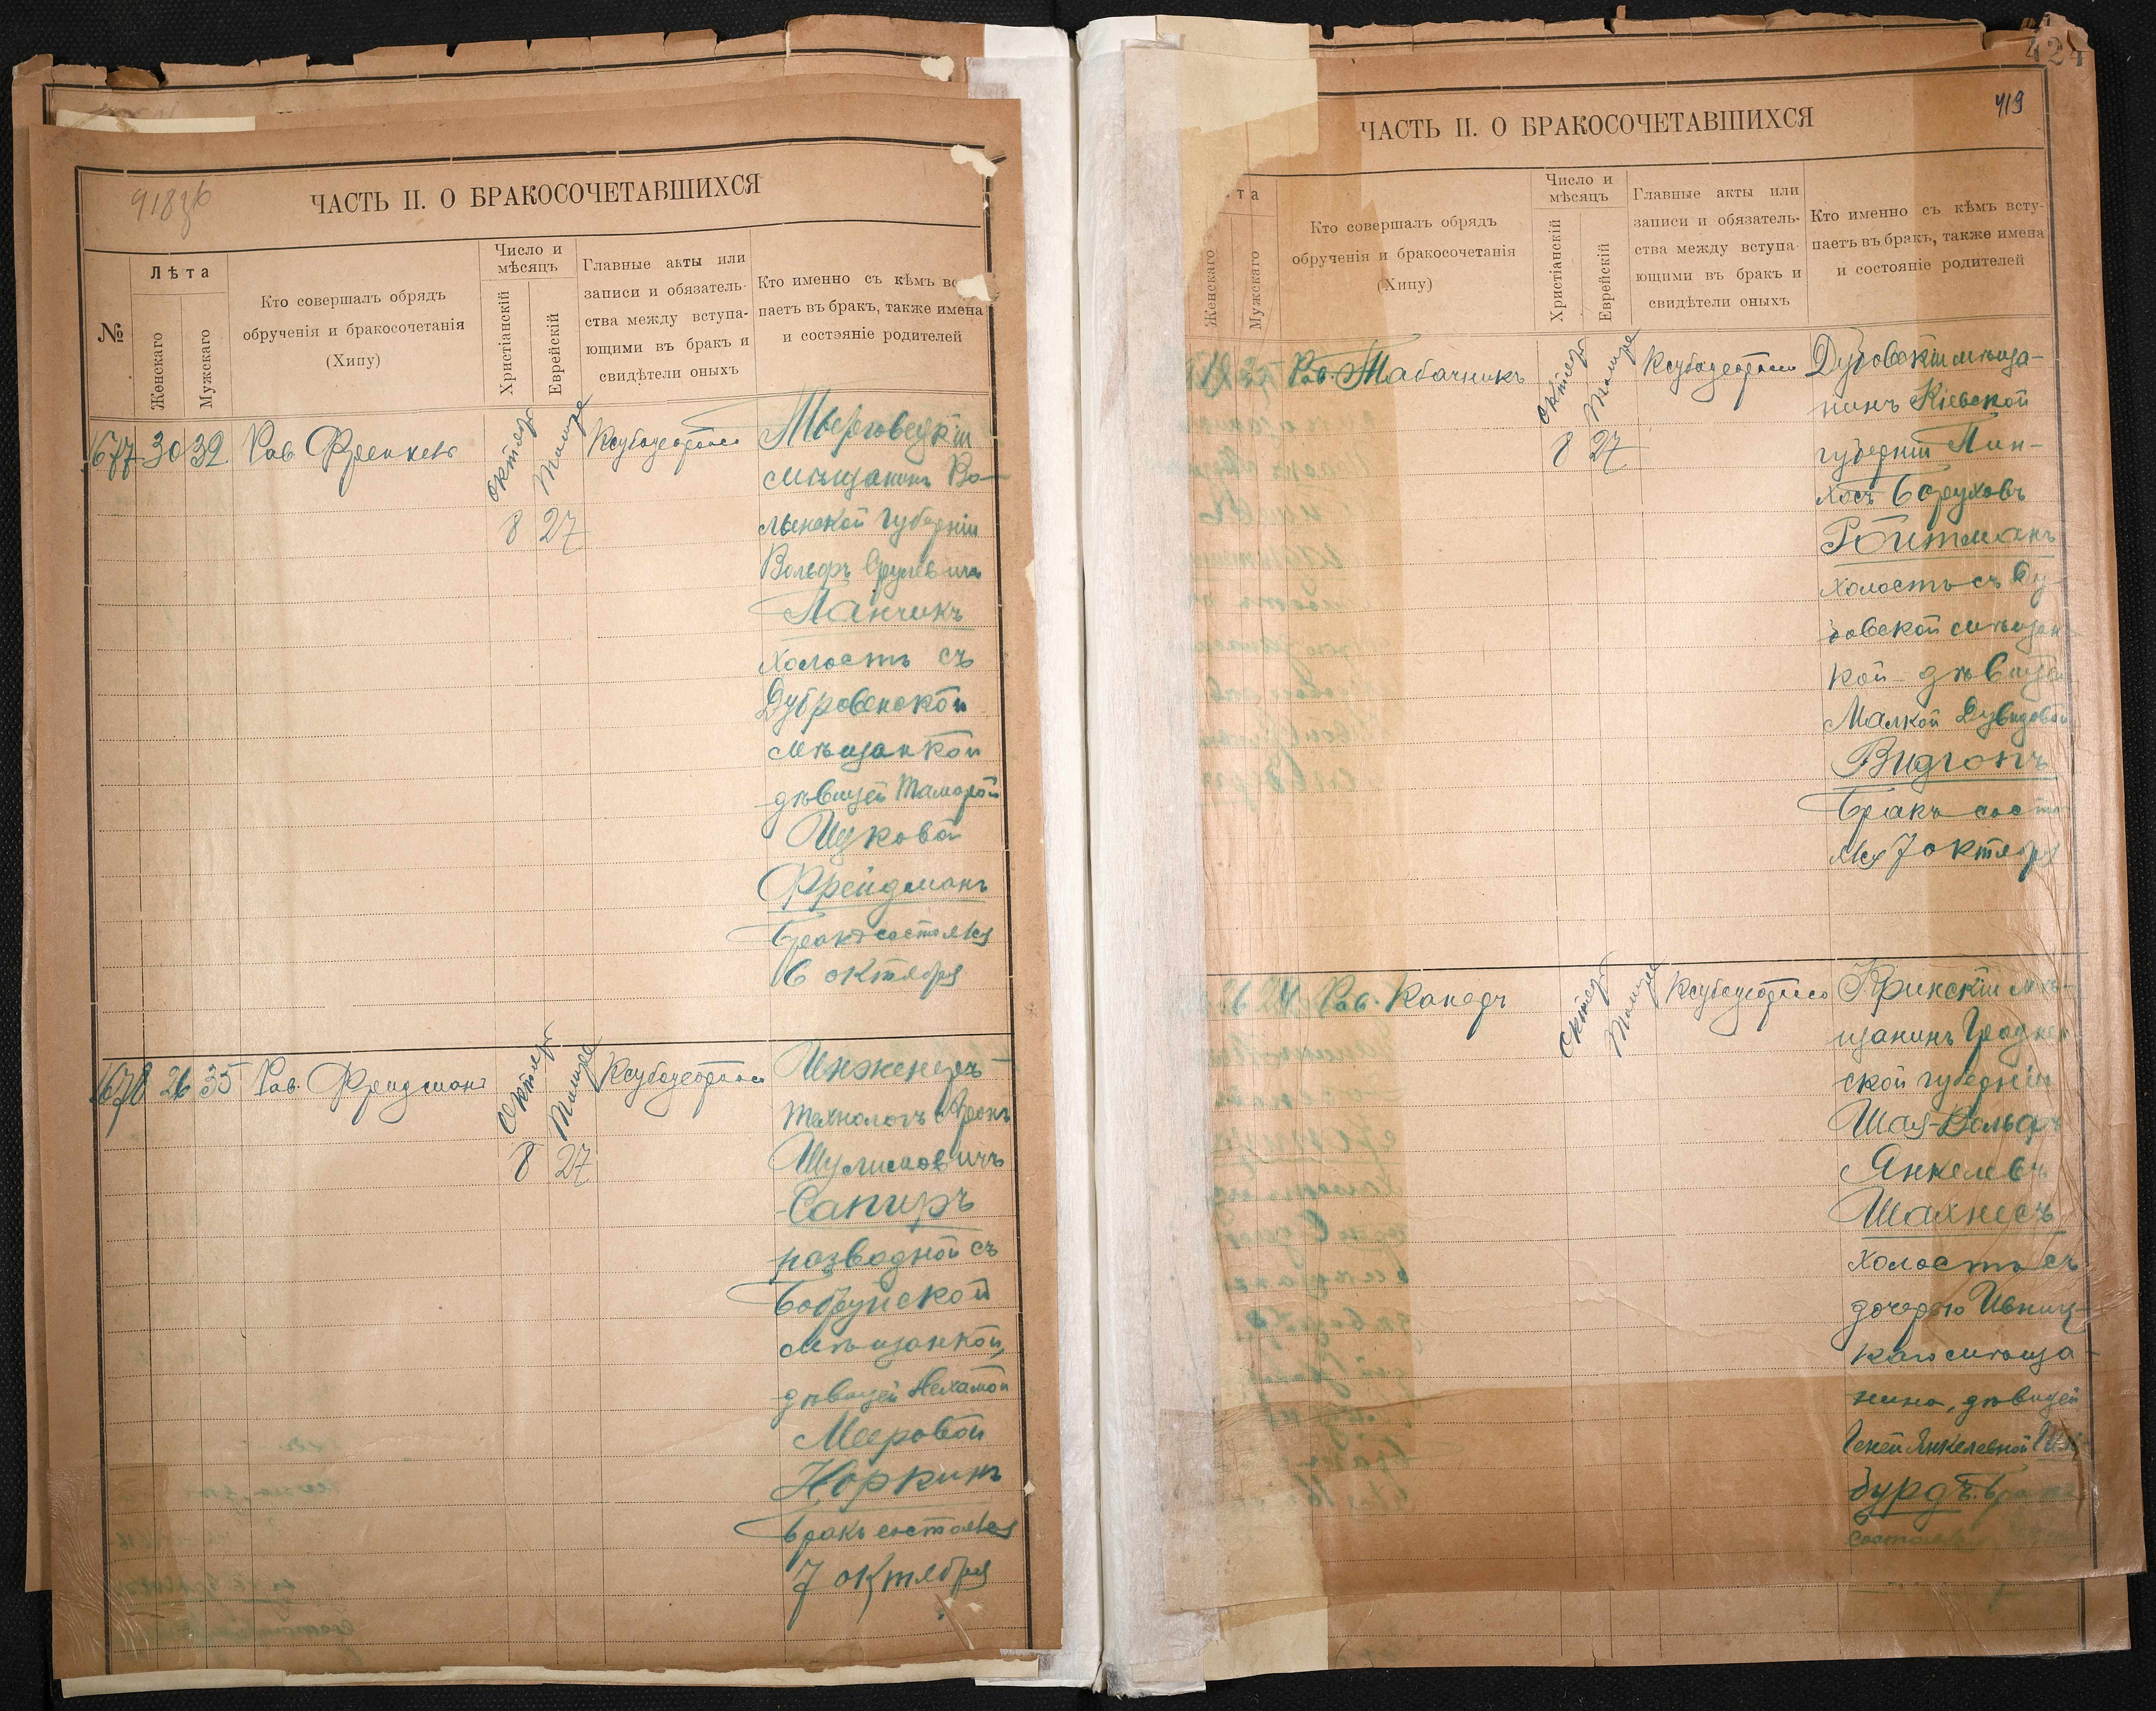 918зб
ЧАСТЬ II. О БРАКОСОЧЕТАВШИХСЯ
№
Лѣта
Женскаго
Мужскаго
Кто совершалъ обрядъ
обрученія и бракосочетанія
(Хипу)
Число и
мѣсяцъ
Христіанскій
Еврейскій
Главные акты или
записи и обязатель-
ства между вступа-
ющими въ бракъ и
свидѣтели оныхъ
Кто именно съ кѣмъ вс
паетъ въ бракъ, также имена
и состояніе родителей
677 30 32 Рав. Френкель
октяб
8
27
мѣщанинъ Во-
лынской губерніи
Вольфъ Срулевичъ
Ланчикъ
холостъ съ
Дубровенской
мѣщанкой
дѣвицей Тамарой
Ицковой
Фрейдманъ
Бракъ состоялся
6 октября
678 26 35 Рав. Фридманъ
октябр
8
27
Инженеръ-
технологъ Аронъ
Шулимовичъ
Сапиръ
разводной съ
Бобруйской
мѣщанкой,
дѣвицей Нехамой
Мееровой
Норкинъ
Бракъ состоялся
7 октября
424
419
ЧАСТЬ II. О БРАКОСОЧЕТАВШИХСЯ
та
Женскаго
Мужскаго
Кто совершалъ обрядъ
обрученія и бракосочетанія
(Хипу)
Число и
мѣсяцъ
Христіанскій
Еврейскій
Главные акты или
записи и обязатель-
ства между вступа-
ющими въ бракъ и
свидѣтели оныхъ
Кто именно съ кѣмъ всту-
паетъ въ бракъ, также имена
и состояніе родителей
Рав. Табачникъ
октябр
8
27
мѣща-
нинъ Кіевской
губерніи Пин-
хосъ Боруховъ
Ройтманъ
холостъ съ
мѣщан
кой дѣвицей
Малкой Дувидовой
Видгопъ
Бракъ состо
лся 7 октябр
26 24 Рав. Канедъ
октяб
Кринскій мѣ-
щанинъ Гроднен
ской губерніи
Шая-Вольфъ
Янкелевъ
Шахнесъ
холостъ съ
дочерью Ивниц-
каго мѣща-
нина, дѣвицей
Геней Янкелевной
бурдъ.
состоялся